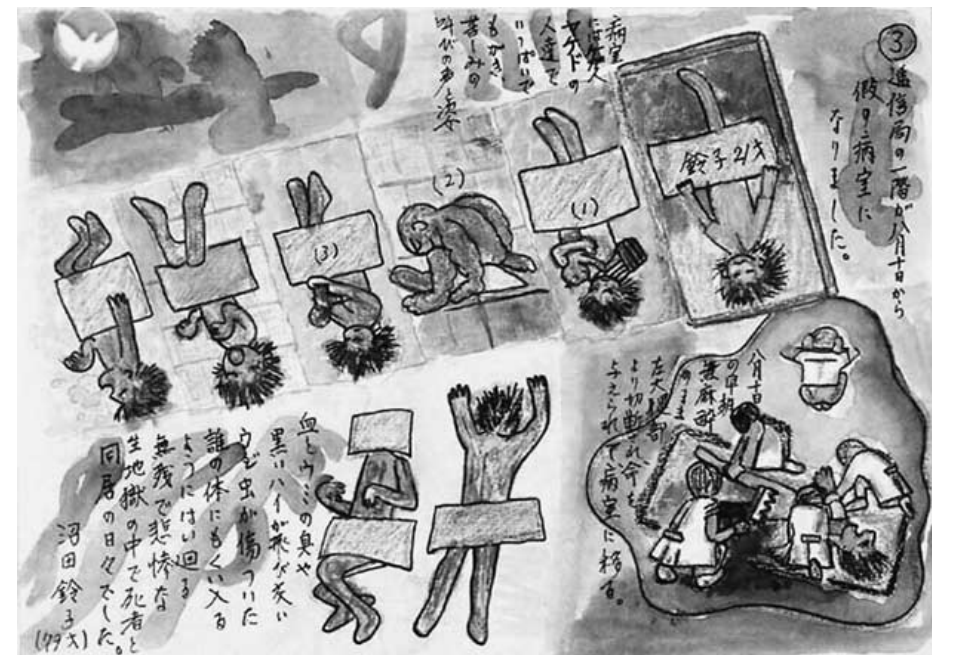 ③ 逓信局の一階が八月十日から
假の病室に
なりました。
病室
には
ヤケドの
人達で
いっぱいで
もがき
苦しみの
叫びの声と姿
鈴子21才
(1)
(2)
(3)
八月十日
の早朝
無麻酔
のまま
左大腿部
より切断され、命を
与えられて病室に移る。
血とウミの臭や
黒いハイが飛び交い
ウジ虫が傷ついた
誰の体にもくい入る
ようにはい廻る
無残で悲惨な
生地獄の中で死者と
同居の日々でした。
沼田鈴子
(79才)